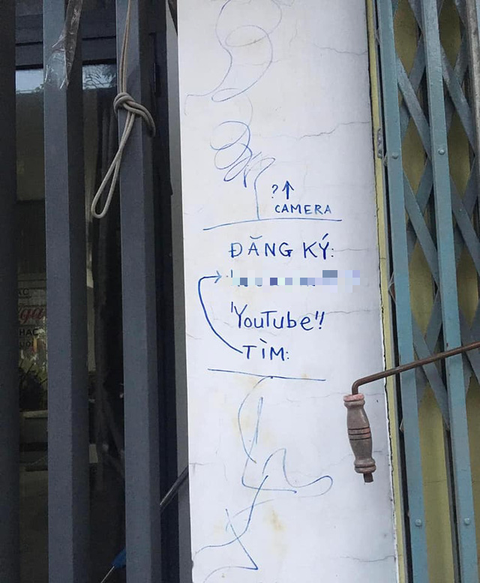 ?↑
CAMERA
ĐĂNG KÝ:
'YouTube'!
TÌM: